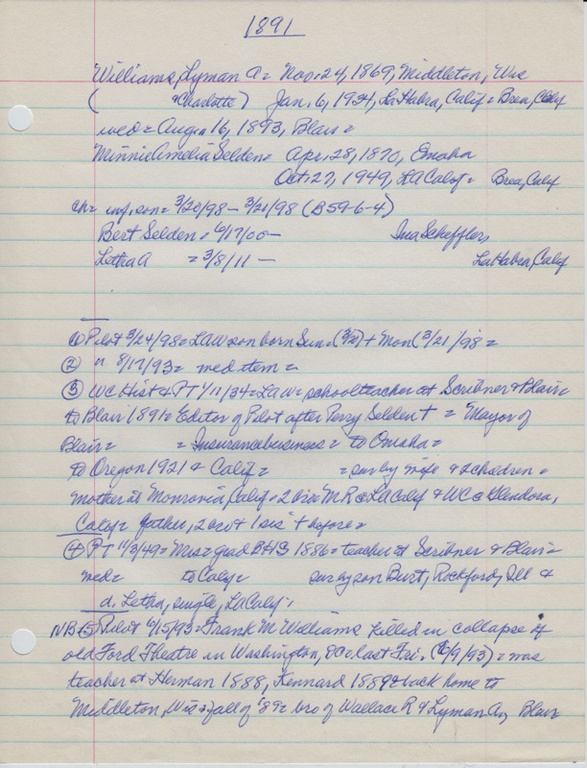 1891
Williams, Lyman A = Nov. 24, 1869, Middleton, Wis
( +Charlotte) Jan. 6, 1934, La Habra, Calif = Brea, Calif
wed = Aug. 16, 1893, Blair =
Minnie Amelia Selden = Apr. 28, 1870, Omaha
Oct. 27, 1949, LA Calif = Brea, Calif
ch = inf. son = 3/20/98 - 3/21/98 (B59-6-4)
Bert Selden = 6/17/00 - Ina Scheffler
Letha A = 3/8/11 - La Habra, Calif
① Pilot 3/24/98 = LAW son born Sun = (3/20) + Mon (3/21/98 =
② " 8/17/93 = wed item =
③ WC Hist & PT 1/11/34 = LAW = schoolteacher at Scribner & Blair =
to Blair 1891 = Editor of Pilot after Perry Selden + = Mayor of
Blair = = Insurance business = to Omaha =
to Oregon 1921 & Calif = = sur by wife & 2 children =
mother at Monrovia, Calif = 2 bros M R @ LA Calif & WC @ Glendora,
Calif = father, 2 bro + 1 sis + before =
④ PT 11/3/49 = Mrs = grad BHS 1886 = teacher at Scribner & Blair =
wed = to Calif = sur by son Burt, Rockford, Ill &
d. Letha, single, LA Calif;
NB ⑤ Pilot 6/15/93 = Frank M Williams killed in collapse of
old Ford Theatre in Washington, DC = last Fri. (6/9/93) = was
teacher at Herman 1888, Kennard 1889 & back home to
Middleton, Wis = fall of '89 = bro of Wallace R & Lyman A, Blair